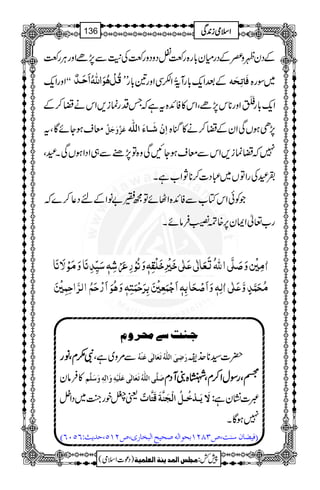 136 اسلامی زندگی
دن کے دن ظہر و عصر کے درمیان بارہ رکعت نفل دو دو رکعت کی نیت سے پڑھے اور ہر رکعت
میں سورہ فاتحہ کے بعد ایک بار آیۃُ الکرسی اور تین بار "قُلْ هُوَ اللّٰهُ اَحَدٌ" اور ایک
ایک بار فلق اور ناس پڑھے، اس کا فائدہ یہ ہے کہ جس قدر نمازیں اس نے قضا کر کے
پڑھی ہوں گی ان کے قضا کرنے کا گناہ اِنْ شَآءَ اللّٰه عَزَّوَجَلَّ معاف ہوجائے گا، یہ
نہیں کہ قضا نمازیں اس سے معاف ہوجائیں گی وہ تو پڑھنے سے ہی ادا ہوں گی۔ عید،
بقرعید کی راتوں میں عبادت کرنا ثواب ہے۔
جو کوئی اس کتاب سے فائدہ اٹھائے تو مجھ فقیر بے نوا کے لئے دعا کرے کہ
رب تعالٰی ایمان پر خاتمہ نصیب فرمائے۔
اٰمِيْن وَصَلَّى اللّٰهُ تَعَالٰى عَلٰى خَيْرِ خَلْقِهٖ وَنُوْرِ عَرْشِهٖ سَيِّدِنَا وَمَوْلَانَا
مُحَمَّدٍ وَّعَلٰى اٰلِهٖ وَاَصْحَابِهٖ اَجْمَعِيْنَ بِرَحْمَتِهٖ وَهُوَ اَرْحَمُ الرَّاحِمِيْنَ
جنت سے محروم
حضرت سیدنا حذیفہ رَضِیَ اللّٰهُ تَعَالٰی عَنْهُ سے مروی ہے، نبیِ مکرم، نورِ
مجسم، رسول اکرم، شہنشاہِ بنی آدم صَلَّی اللّٰهُ تَعَالٰی عَلَیْهِ وَاٰلِهٖ وَسَلَّم کا فرمان
عبرت نشان ہے: لَا يَدْخُلُ الْجَنَّةَ قَتَّاتٌ یعنی چغل خور جنت میں داخل
نہیں ہوگا۔
(فیضان سنت، ص۱۲۸۳ بحوالہ صحیح البخاری، ص۵۱۲، حدیث: ۶۰۵۶)
پیش کش: مجلس المدینة العلمیة (دعوت اسلامی)